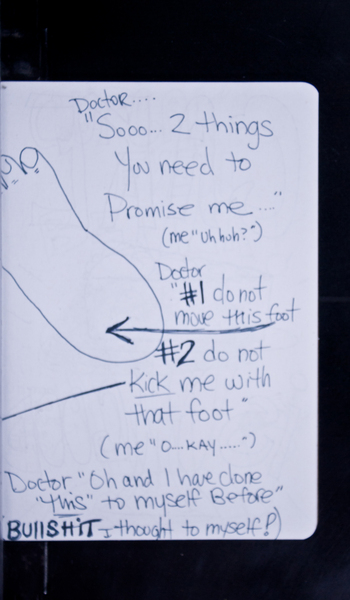 Doctor....
"Sooo... 2 things
You need to
Promise me ...."
(me "Uhhuh?")
Doctor
"#1 do not
move this foot
#2 do not
Kick me with
that foot"
(me "O....KAY.....")
Doctor "Oh and I have done
"this" to myself Before"
BUllSHiT I thought to myself!)